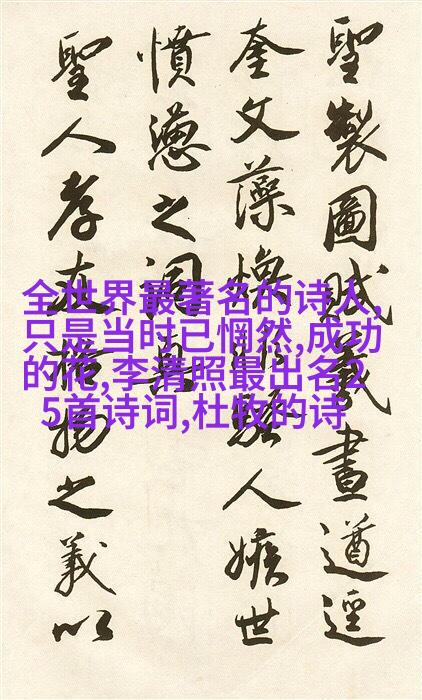 聖製圖賊義畫遒逕
奎文藻煥騷人嫉世
憤懣之
聖人存物之義以
全世界最著名的诗人,
只是当时已惘然,成功
的花,李清照最出名2
5首诗词,杜牧的诗